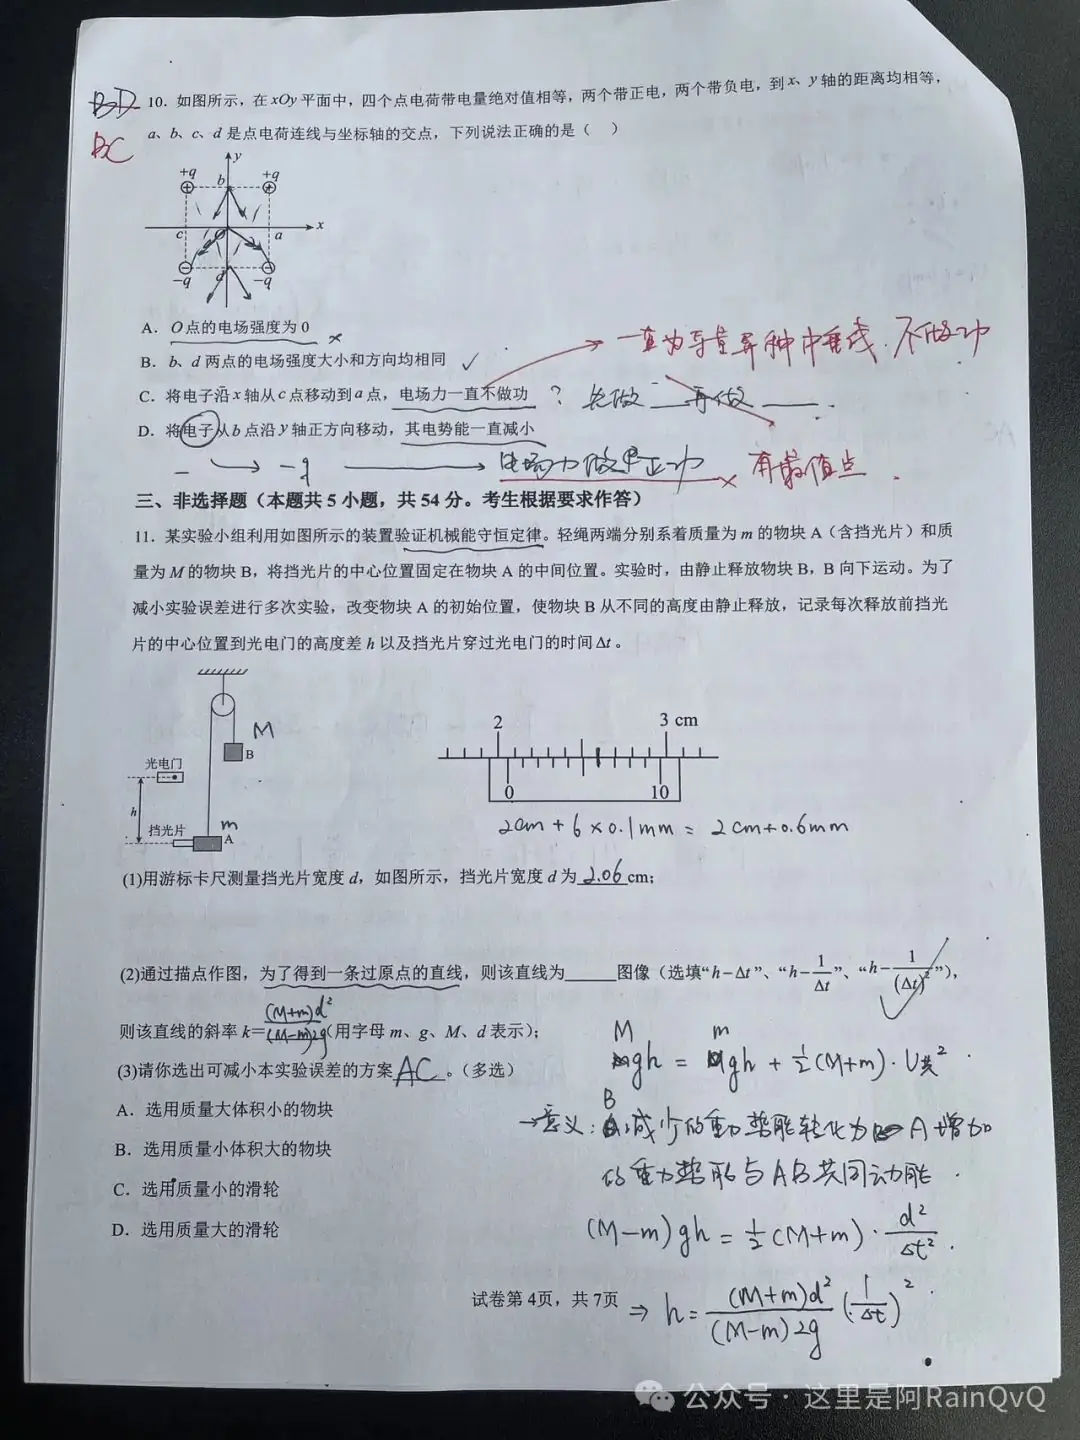 BD
BC
10．如图所示，在 xOy 平面中，四个点电荷带电量绝对值相等，两个带正电，两个带负电，到 x、y 轴的距离均相等，
a、b、c、d 是点电荷连线与坐标轴的交点，下列说法正确的是（ ）
y
+q b +q
c a x
-q d -q
A．O点的电场强度为 0 ×
一直为等量异种中垂线．不做功
B．b、d 两点的电场强度大小和方向均相同 ✓
C．将电子沿 x 轴从 c 点移动到 a 点，电场力一直不做功 ? 先做 — 再做
D．将电子从 b 点沿 y 轴正方向移动，其电势能一直减小
— → -q → 电场力做正功 × 有最值点．
三、非选择题（本题共 5 小题，共 54 分。考生根据要求作答）
11．某实验小组利用如图所示的装置验证机械能守恒定律。轻绳两端分别系着质量为 m 的物块 A（含挡光片）和质
量为 M 的物块 B，将挡光片的中心位置固定在物块 A 的中间位置。实验时，由静止释放物块 B，B 向下运动。为了
减小实验误差进行多次实验，改变物块 A 的初始位置，使物块 B 从不同的高度由静止释放，记录每次释放前挡光
片的中心位置到光电门的高度差 h 以及挡光片穿过光电门的时间 Δt 。
M
B
光电门
h
挡光片
m
A
2 3 cm
0 10
2cm + 6 × 0.1mm = 2cm+0.6mm
(1)用游标卡尺测量挡光片宽度 d，如图所示，挡光片宽度 d 为 2.06 cm；
(2)通过描点作图，为了得到一条过原点的直线，则该直线为______图像（选填“h−Δt”、“h−1/Δt”、“h−1/(Δt)²”），
则该直线的斜率 k= (M+m)d²/(M-m)2g (用字母 m、g、M、d 表示)；
M m
gh = gh + ½(M+m)·V共² .
(3)请你选出可减小本实验误差的方案 AC 。（多选）
A．选用质量大体积小的物块
→意义: B 减少的重力势能转化为 A 增加
B．选用质量小体积大的物块
的重力势能与AB共同动能．
C．选用质量小的滑轮
(M-m)gh = ½(M+m)·d²/Δt² .
D．选用质量大的滑轮
试卷第 4页，共 7页
⇒ h = (M+m)d²/(M-m)2g (1/Δt)² .
公众号 · 这里是阿RainQvQ